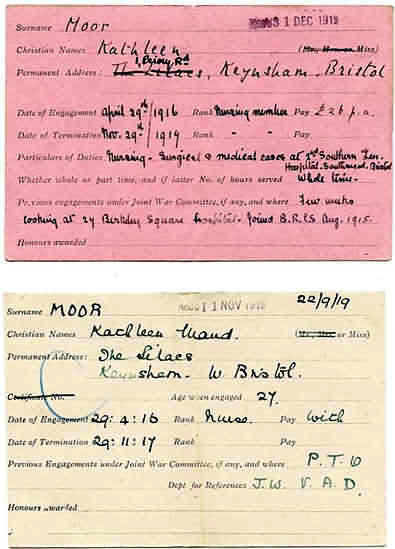 31 DEC 1919
Surname Moor
Christian Names Kathleen (Mr., Mrs. or Miss)
1, Priory Rd
Permanent Address: The Lilacs, Keynsham. Bristol
Date of Engagement April 29th/1916 Rank Nursing member Pay £26 p.a.
Date of Termination Nov. 29th/1919 Rank " " Pay
Particulars of Duties Nursing - Surgical & medical cases at 2nd Southern Gen.
Hospital. Southmead. Bristol
Whether whole or part time, and if latter No. of hours served Whole time -
Previous engagements under Joint War Committee, if any, and where Few weeks
cooking at 24 Berkeley Square hospital. Joined B.R.C.S Aug. 1915.
Honours awarded
11 NOV 1919 22/9/19
Surname MOOR
Christian Names Kathleen Maud. (Mr., Mrs. or Miss)
Permanent Address: The Lilacs
Keynsham. W Bristol.
Certificate No. Age when engaged 27.
Date of Engagement 29: 4: 16 Rank Nurse. Pay With
Date of Termination 29: 11: 17 Rank Pay
Previous Engagements under Joint War Committee, if any, and where P.T.O
Dept for References J.W. V.A.D.
Honours awarded